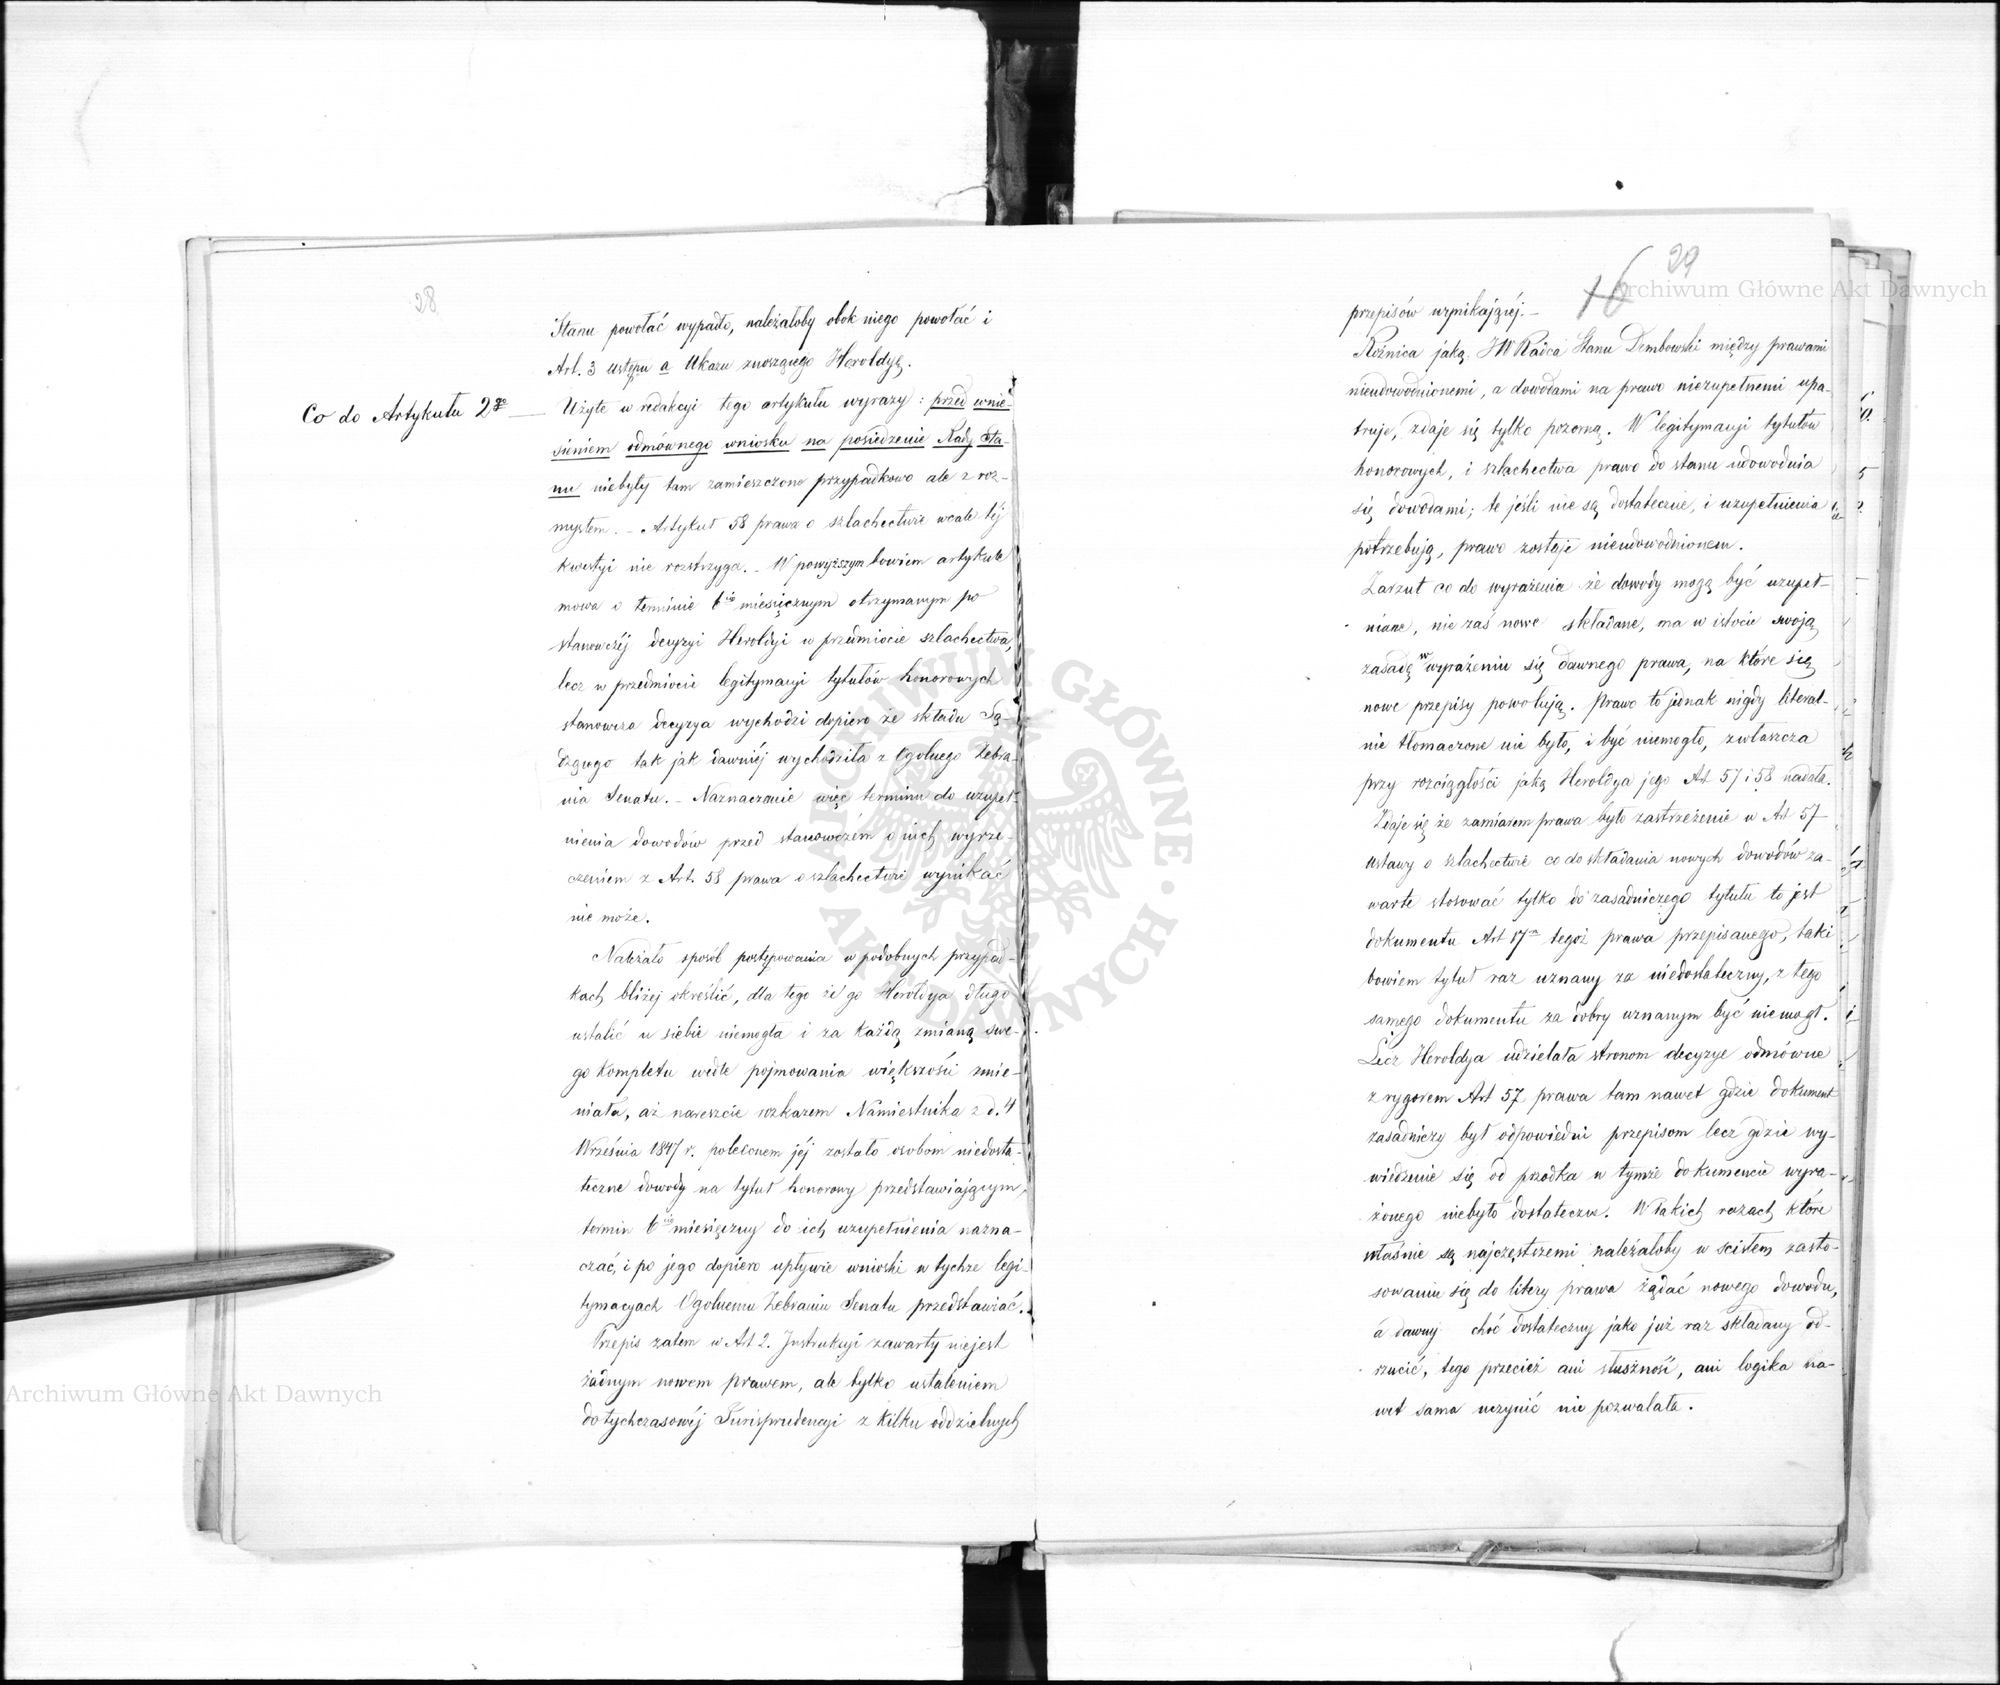 28
Stanu powołać wypadło, należałoby obok niego powołać i
Art. 3 ustępu a Ukazu znoszącego Heroldyą.
Co do Artykułu 2go
Użyte w redakcyi tego artykułu wyrazy: przed wnie-
sieniem odmównego wniosku na posiedzenie Rady Sta-
nu niebyły tam zamieszczone przypadkowo ale z roz-
mysłem. – Artykuł 58 prawa o szlachectwie wcale téj
kwestyi nie rozstrzyga. – W powyższym bowiem artykule
mowa o terminie 6cio miesięcznym otrzymanym po
stanowczéj decyzyi Heroldyi w przedmiocie szlachectwa,
lecz w przedmiocie legitymacyi tytułów honorowych
stanowcza decyzya wychodzi dopiero ze składu Są-
dzącego tak jak dawniéj wychodziła z Ogólnego Zebra-
nia Senatu. – Naznaczenie więc terminu do uzupeł-
nienia dowodów przed stanowczém o nich wyrze-
czeniem z Art. 58 prawa o szlachectwie wynikać
nie może.
Należało sposób postępowania w podobnych przypad-
kach bliżej określić, dla tego że go Heroldya długo
ustalić u siebie niemogła i za każdą zmianą swe-
go Kompletu wedle pojmowania większości zmie-
niała, aż nareszcie rozkazem Namiestnika z d. 4
Września 1847 r. poleconem jéj zostało osobom niedosta-
teczne dowody na tytuł honorowy przedstawiającym,
termin 6cio miesięczny do ich uzupełnienia nazna-
czać, i po jego dopiero upływie wnioski w tychże legi-
tymacyach Ogólnemu Zebraniu Senatu przedstawiać.
Przepis zatem w Art 2. Instrukcyi zawarty niejest
żadnym nowem prawem, ale tylko ustaleniem
dotychczasowéj Jurisprudencyi z kilku oddzielnych
29
16
przepisów wynikającéj. –
Różnica jaką JW Radca Stanu Dembowski między prawami
nieudowodnionemi, a dowodami na prawo niezupełnemi upa-
truje, zdaje się tylko pozorną. W legitymacyi tytułów
honorowych, i szlachectwa prawo do stanu udowodnia
się dowodami; te jeśli nie są dostateczne, i uzupełnienia
potrzebują, prawo zostaje nieudowodnionem.
Zarzut co do wyrażenia że dowody mogą być uzupeł-
niane, nie zaś nowe składane, ma w istocie swoją
zasadę w wyrażeniu się dawnego prawa, na które się
nowe przepisy powołują. Prawo to jednak nigdy literal-
nie tłomaczone nie było, i być niemogło, zwłaszcza
przy rozciągłości jaką Heroldya jego Art 57 i 58 nadała.
Zdaje się że zamiarem prawa było zastrzeżenie w Art 57
ustawy o szlachectwie co do składania nowych dowodów za-
warte stosować tylko do zasadniczego tytułu to jest
dokumentu Art 17m tegoż prawa przepisanego, taki
bowiem tytuł raz uznany za niedostateczny, z tego
samego dokumentu za dobry uznanym być niemógł.
Lecz Heroldya udzielała stronom decyzye odmówne
z rygorem Art 57 prawa tam nawet gdzie dokument
zasadniczy był odpowiedni przepisom lecz gdzie wy-
wiedzenie się od przodka w tymże dokumencie wyra-
żonego niebyło dostateczne. W takich razach które
właśnie są najczęstszemi należałoby w ścisłem zasto-
sowaniu się do litery prawa żądać nowego dowodu,
a dawny choć dostateczny jako już raz składany od-
rzucić, tego przecież ani słuszność, ani logika na-
wet sama uczynić nie pozwalała.
Archiwum Główne Akt Dawnych
Archiwum Główne Akt Dawnych
ARCHIWUM GŁÓWNE AKT DAWNYCH